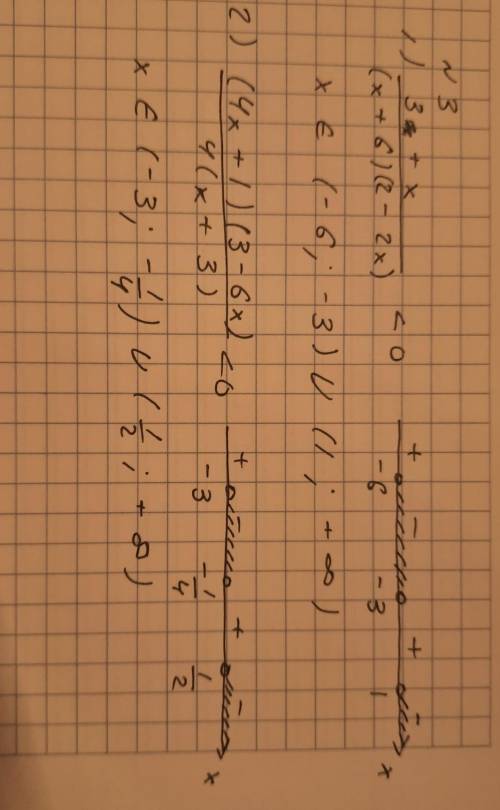 №3
1) (3 + x) / ((x + 6)(2 - 2x)) < 0
+ - + -
-6 -3 1 x
x ∈ (-6; -3) ∪ (1; +∞)
2) ((4x + 1)(3 - 6x)) / (4(x + 3)) < 0
+ - + -
-3 -1/4 1/2 x
x ∈ (-3; -1/4) ∪ (1/2; +∞)